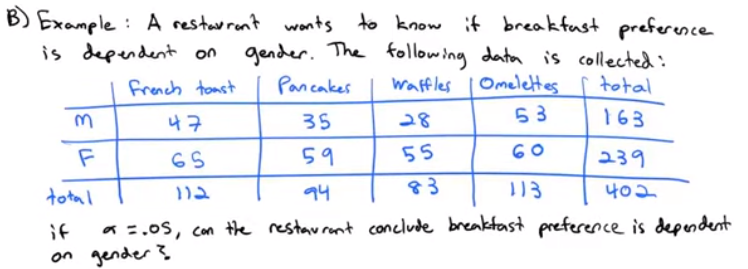 B) Example: A restaurant wants to know if breakfast preference
is dependent on gender. The following data is collected:
French toast Pancakes Waffles Omelettes total
M 47 35 28 53 163
F 65 59 55 60 239
total 112 94 83 113 402
if α = .05, can the restaurant conclude breakfast preference is dependent
on gender?